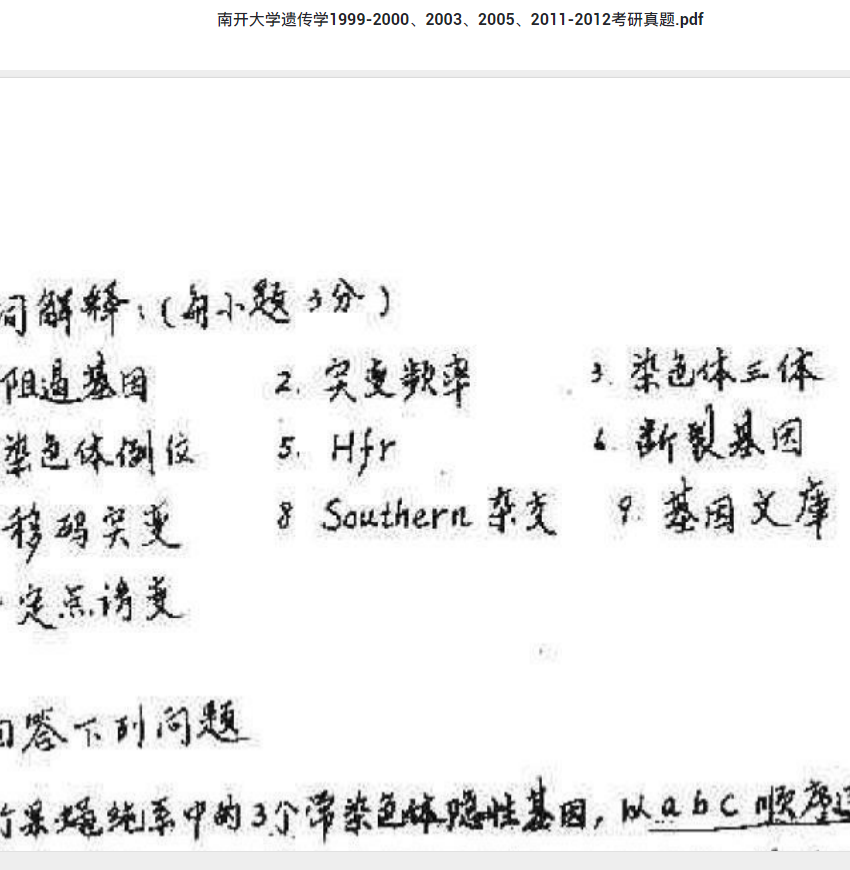 南开大学遗传学1999-2000、2003、2005、2011-2012考研真题.pdf
词解释:(每小题3分)
阻遏基因 2. 突变频率 3. 染色体三体
染色体倒位 5. Hfr 6. 断裂基因
移码突变 8 Southern 杂交 9. 基因文库
定点诱变
回答下列问题
果蝇纯系中的3个常染色体隐性基因,以abc顺序